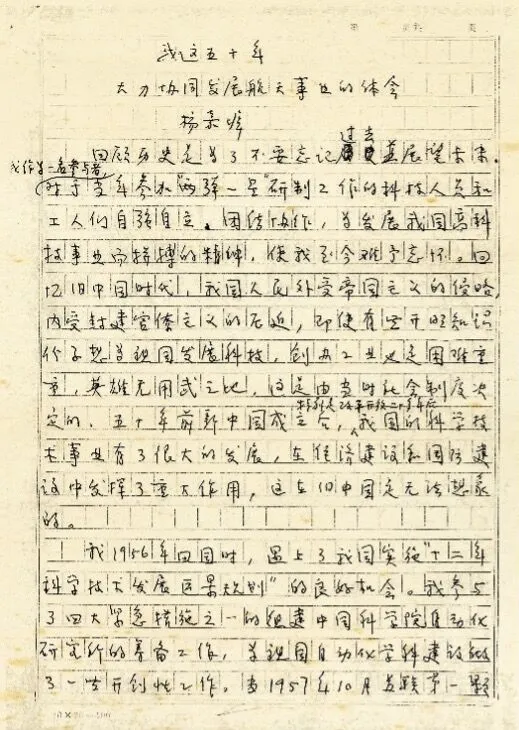 我这五十年
大力协同发展航天事业的体会
杨嘉墀
过去
回顾历史是为了不要忘记展望未来。
我作为一名参与者
对于当年参加"两弹一星"研制工作的科技人员和
工人们自强自立、团结协作，为发展我国高科
技事业而拼搏的精神，使我至今难予忘怀。回
忆旧中国时代，我国人民外受帝国主义的侵略，
内受封建官僚主义的压迫，即使有些开明知识
份子想为祖国发展科技，创办工业也是困难重
重，英雄无用武之地，这是由当时社会制度决
特别是改革开放二十年后
定的。五十年前新中国成立后，我国的科学技
术事业有了很大的发展，在经济建设和国防建
设中发挥了重大作用，这在旧中国是无法想象
的。
我1956年回国时，遇上了我国实施"十二年
科学技术发展远景规划"的良好机会。我参与
了四大紧急措施之一的组建中国科学院自动化
研究所的筹备工作，为祖国自动化学科建设做
了一些开创性工作。当1957年10月苏联第一颗